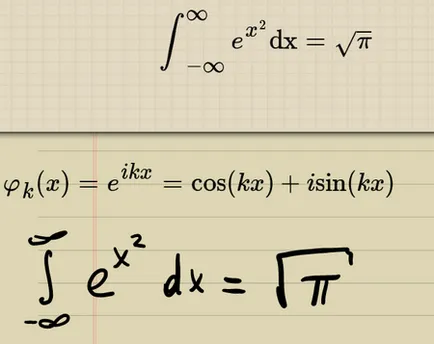 ∫_{-∞}^{∞} e^{x^2} dx = √π
φ_k(x) = e^{ikx} = cos(kx) + isin(kx)
∫_{-∞}^{∞} e^{x^2} dx = √π